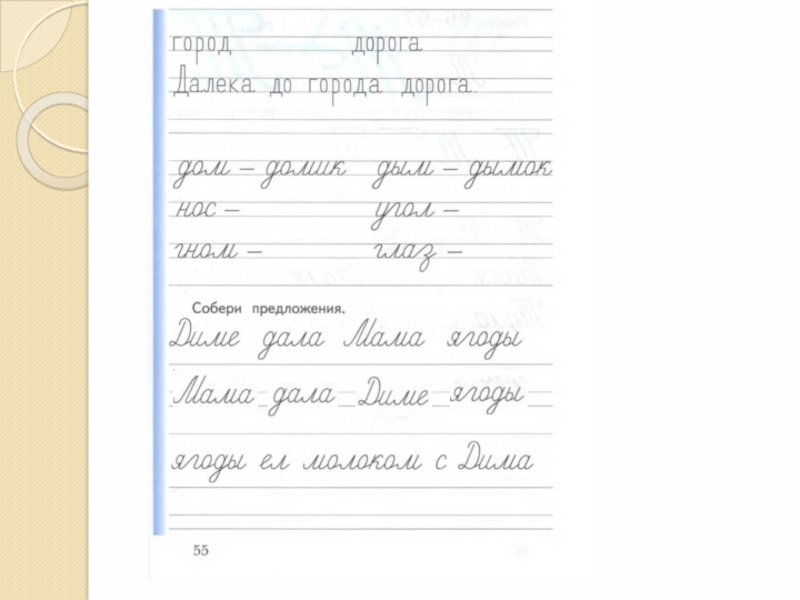 город дорога
Далека до города дорога.
дом – домик дым – дымок
нос – угол –
гном – глаз –
Собери предложения.
Диме дала Мама ягоды
Мама дала Диме ягоды
ягоды ел молоком с Дима
55